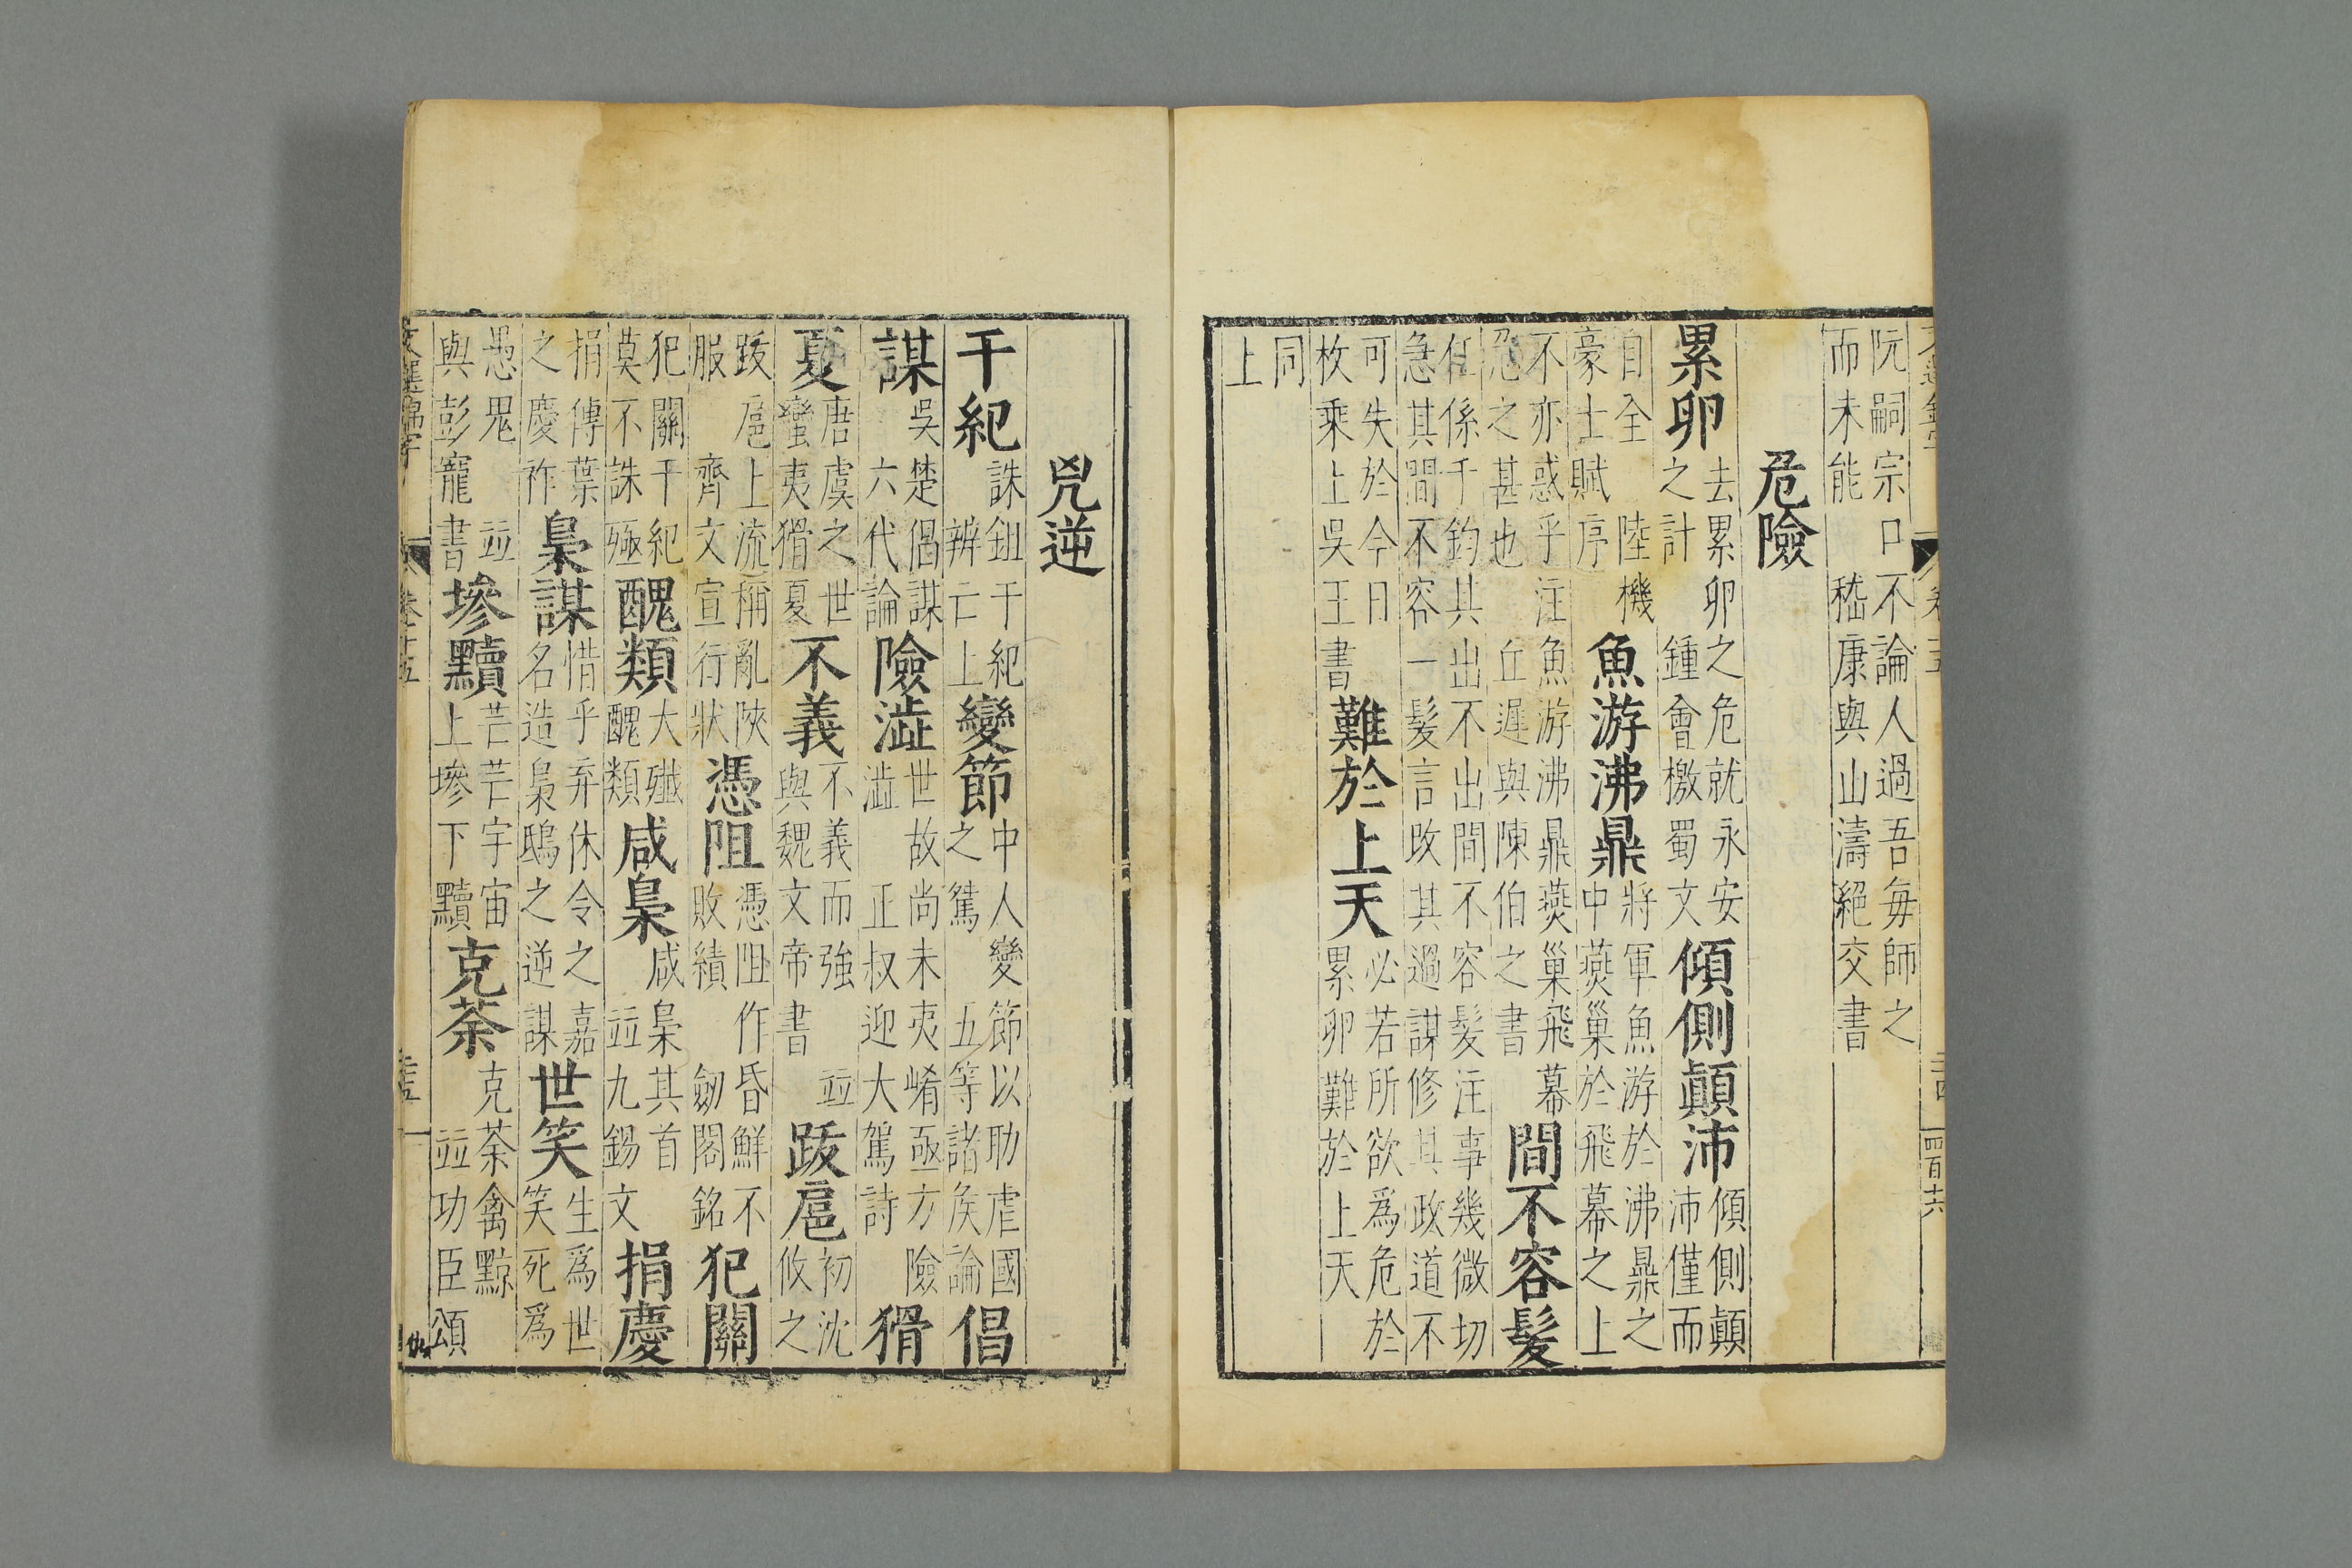 卷十五
阮嗣宗口不論人過吾毎師之
而未能 嵇康與山濤絕交書
危險
累卵
去累卵之危就永安
之計 鍾會檄蜀文
傾側顛沛
傾側顛
沛僅而
自全 陸機
豪士賦序
魚游沸鼎
將軍魚游於沸鼎之
中燕巢於飛幕之上
不亦惑乎注魚游沸鼎燕巢飛幕
之甚也 丘遲與陳伯之書
間不容髮
任係千鈞其出不出間不容髮注事幾微切
急其間不容一髮言攺其過謀修其政道不
可失於今日
枚乘上吳王書
難於上天
必若所欲爲危於
累卵難於上天
同
上
兇逆
干紀
誅鉏干紀
辨亡上
變節
中人變節以助虐國
之鴛 五等諸侯論
倡
謀
吳楚倡謀
六代論
險澁
世故尚未夷崤亟方險
澁 正叔迎大駕詩
猾
夏
唐虞之世
蠻夷猾夏
不義
不義而強 並
與魏文帝書
跋扈
初沈
攸之
跋扈上流稱亂陝
服 齊文宣行狀
憑阻
憑阻作昏鮮不
敗績 劒閣銘
犯關
犯關干紀
莫不誅殛
醜類
大殲
醜類
咸梟
咸梟其首
並九錫文
捐慶
捐傳葉
之慶祚
梟謀
惜乎弃休令之嘉
名造梟鴟之逆謀
世笑
生爲世
笑死爲
愚鬼 並
與彭寵書
墋黷
芒芒宇宙
上墋下黷
克荼
克荼禽黥
並功臣頌
文選錦字
卷十五